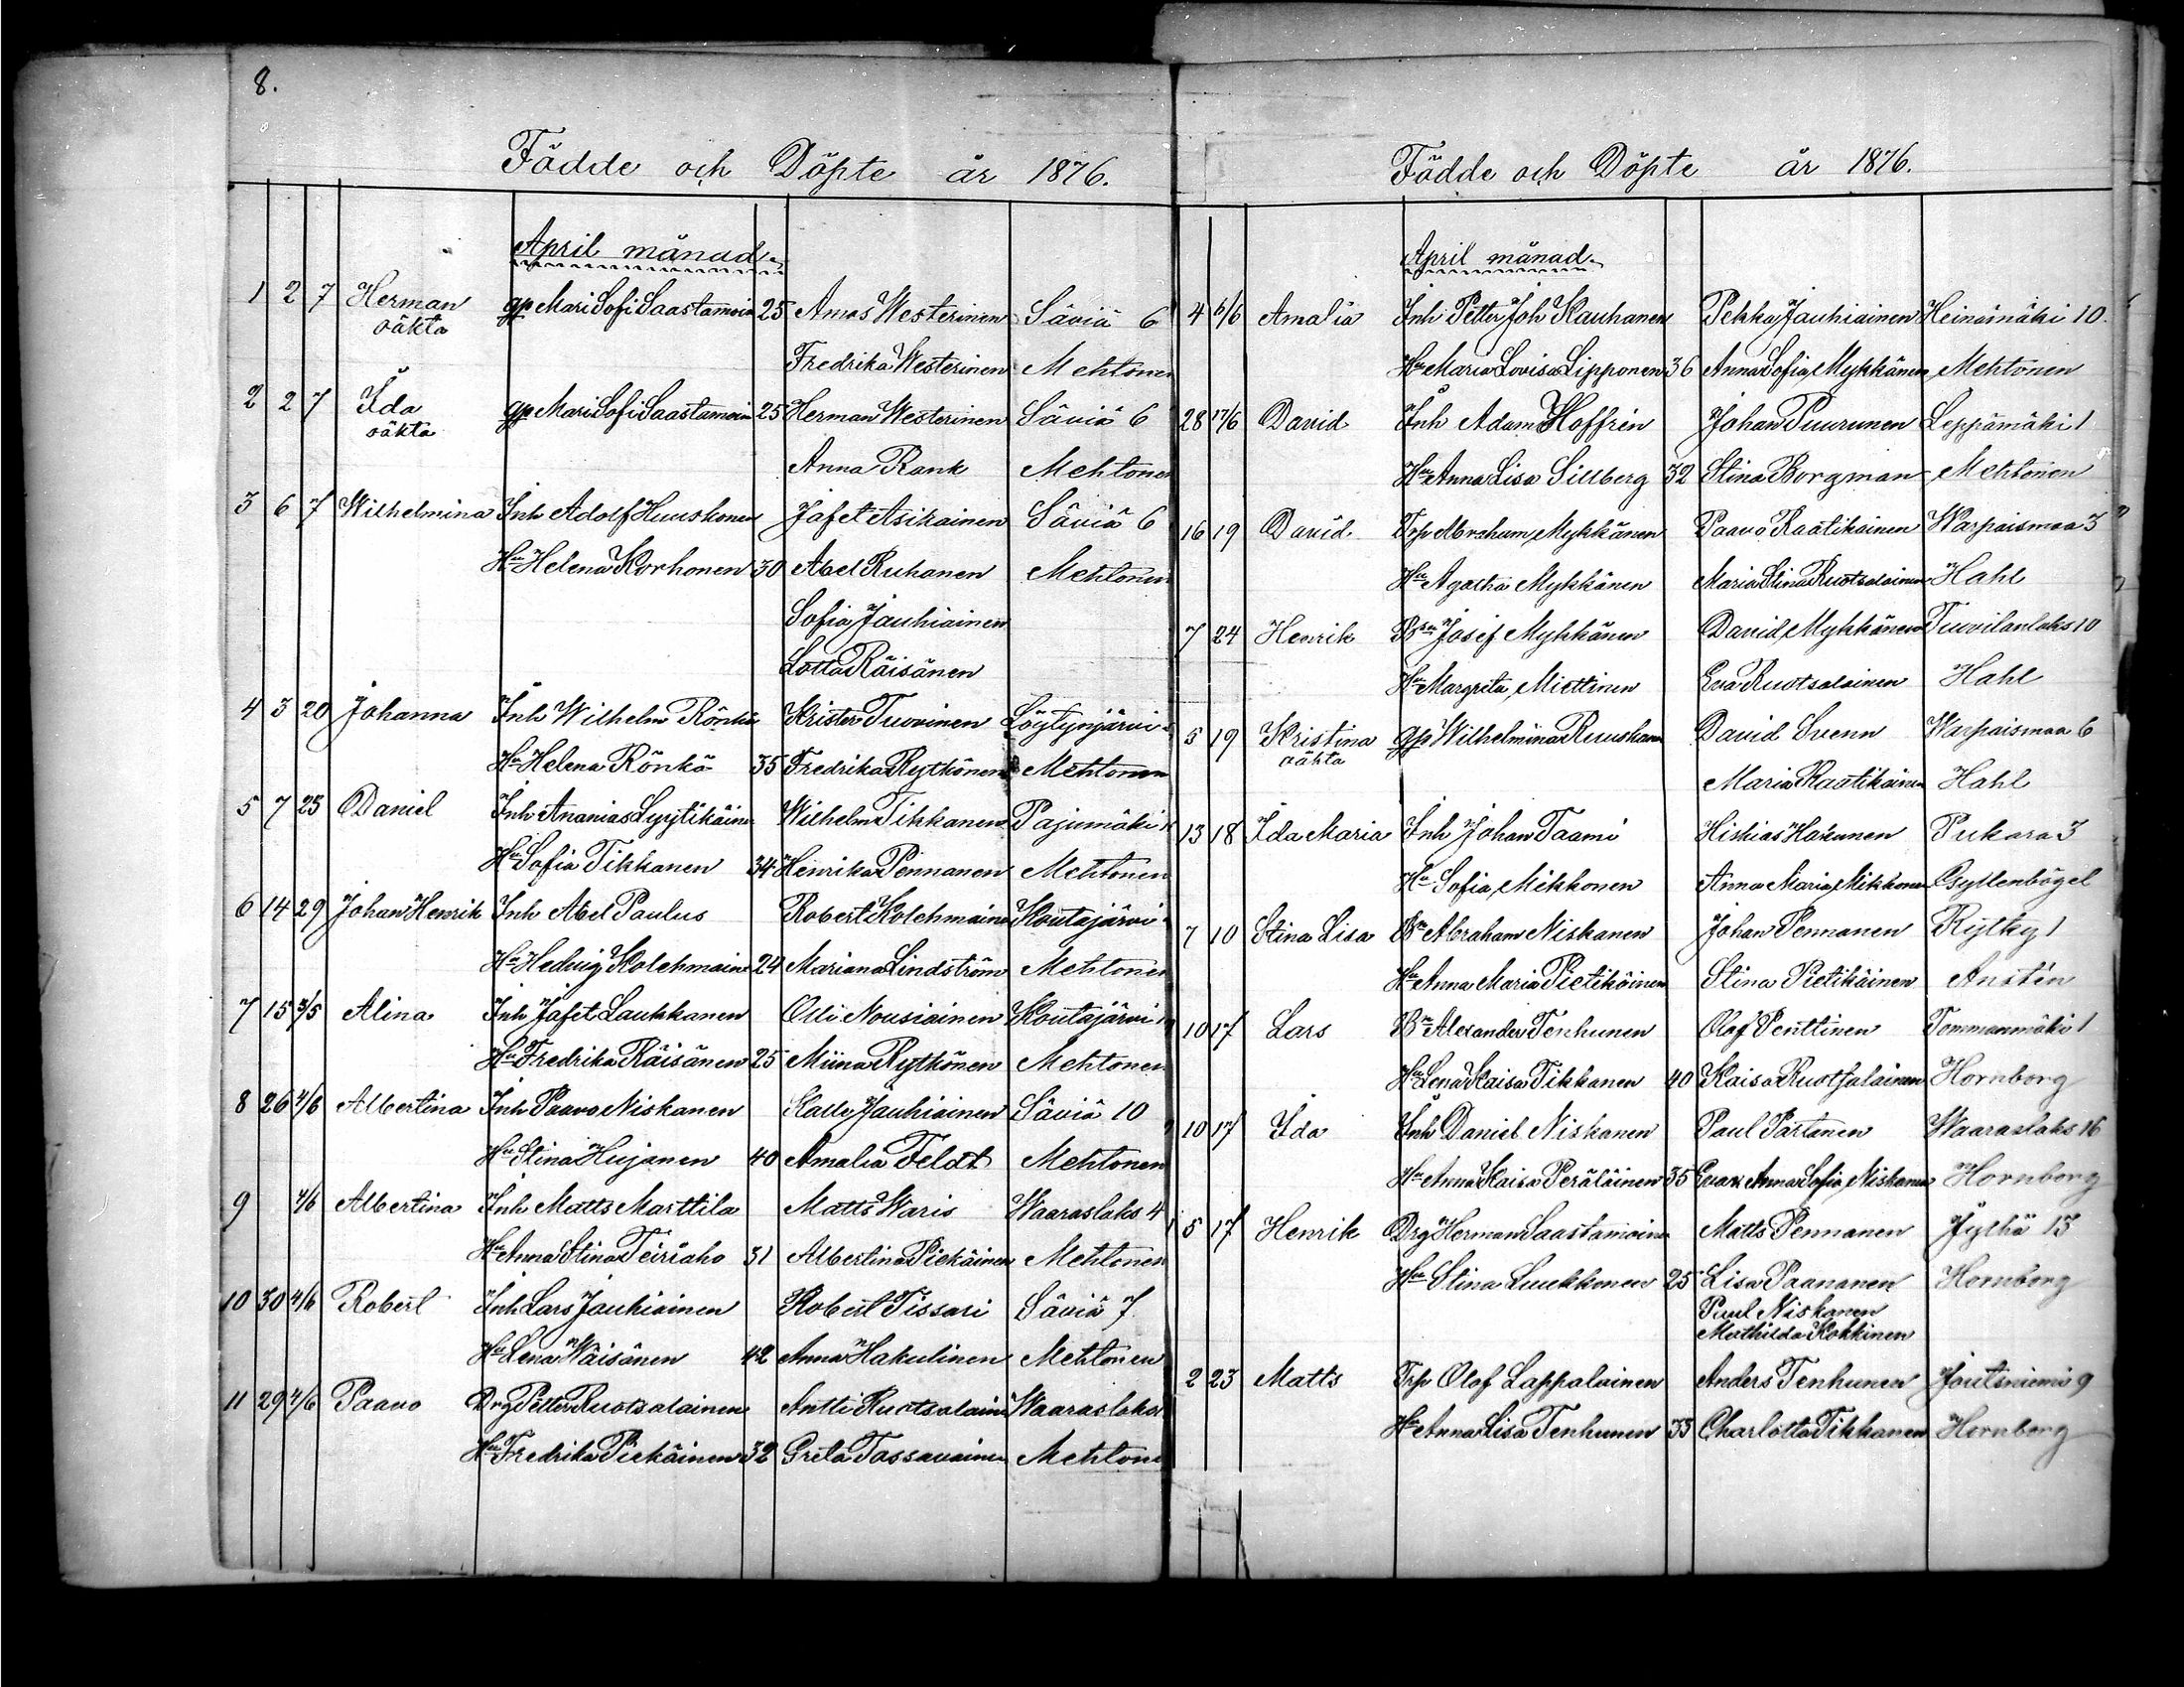 8.
Födde och Döpte år 1876.
April månad
1 2 7 Herman gp Mari Sofi Saastamoin 25 Amos Westerinen Säviä 6
oäkta
Fredrika Westerinen Mehtonen
2 2 7 Ida gp Mari Sofi Saastamoin 25 Herman Westerinen Säviä 6
oäkta
Anna Rank Mehtonen
3 6 7 Wilhelmina Inh Adolf Huuskonen Jafet Asikainen Säviä 6
Hu Helena Korhonen 30 Abel Ruhanen Mehtonen
Sofia Jauhiainen
Lotta Räisänen
4 3 20 Johanna Inh Wilhelm Rönkä Krister Tuovinen Löytynjärvi
Hu Helena Rönkä 35 Fredrika Rytkönen Mehtonen
5 7 23 Daniel Inh Ananias Lyytikäine Wilhelm Tikkanen Pajumäki
Hu Sofia Tikkanen 34 Henrika Pennanen Mehtonen
6 14 29 Johan Henrik Inh Abel Paulus Robert Kolehmaine Koutajärvi
Hu Hedvig Kolehmaine 24 Mariana Lindström Mehtonen
7 15 3/5 Alina Inh Jafet Laukkanen Olli Nousiainen Koutajärvi
Hu Fredrika Räisänen 25 Miina Rytkönen Mehtonen
8 26 4/6 Albertina Inh Paavo Niskanen Kalle Jauhiainen Säviä 10
Hu Stina Hujanen 40 Amalia Feldt Mehtonen
9 4/6 Albertina Inh Matts Marttila Matts Waris Waaraslaks 4
Hu Anna Stina Teiriaho 31 Albertina Piekäinen Mehtonen
10 30 4/6 Robert Inh Lars Jauhiainen Robert Tissari Säviä 7
Hu Lena Wäisänen 42 Anna Hakulinen Mehtonen
11 29 4/6 Paavo Drg Petter Ruotsalainen Antti Ruotsalaine Waaraslaks
Hu Fredrika Piekäinen 32 Greta Tassavainen Mehtone
Födde och Döpte år 1876.
April månad
4 6/6 Amalia Inh Petter Joh Kauhanen Pekka Jauhiainen Heinämäki 10.
Hu Maria Lovisa Lipponen 36 Anna Sofia Mykkänen Mehtonen
28 17/6 David Inh Adam Hoffrén Johan Puurunen Leppämäki 1
Hu Anna Lisa Sillberg 32 Stina Borgman Mehtonen
16 19 David Trp Abraham Mykkänen Paavo Raatikainen Warpaismaa 3
Hu Agatha Mykkänen Maria Stina Ruotsalainen Hahl
7 24 Henrik Bsn Josef Mykkänen David Mykkänen Tuovilanlaks 10
Hu Margreta Miettinen Eva Ruotsalainen Hahl
5 19 Kristina gp Wilhelmina Ruuskane David Svenn Warpaismaa 6
oäkta
Maria Raatikainen Hahl
13 18 Ida Maria Inh Johan Taami Hiskias Hakunen Pukara 3
Hu Sofia Mikkonen Anna Maria Mikkonen Gyllenbögel
7 10 Stina Lisa Bn Abraham Niskanen Johan Pennanen Rytky 1
Hu Anna Maria Pietikäinen Stina Pietikäinen Anstén
10 17 Lars Bn Alexander Tenhunen Olof Penttinen Tommanmäki 1
Hu Lena Kaisa Tikkanen 40 Kaisa Ruotsalainen Hornborg
10 17 Ida Inh Daniel Niskanen Paul Partanen Waaraslaks 16
Hu Anna Kaisa Peräläinen 35 Anna Sofia Niskanen Hornborg
5 17 Henrik Drg Herman Saastamoine Matts Pennanen Jythä 15
Hu Stina Luukkonen 25 Lisa Paananen Hornborg
Paul Niskanen
Mathilda Kokkinen
2 23 Matts Trp Olof Lappalainen Anders Tenhunen Joutsniemi 9
Hu Anna Lisa Tenhunen 33 Charlotta Tikkanen Hornborg